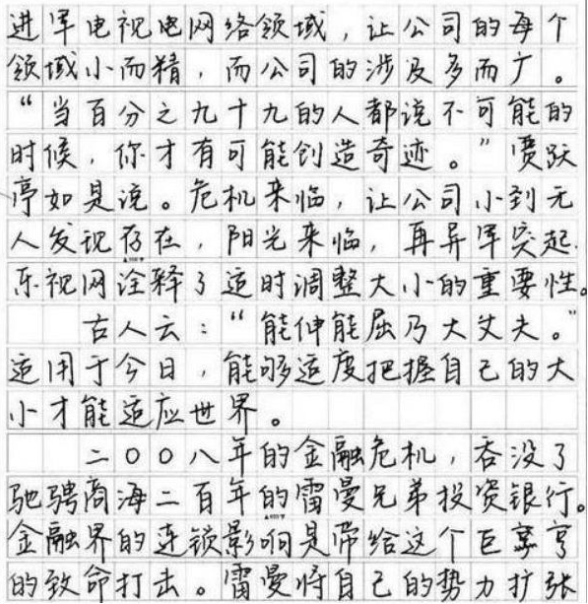 进军电视电网络领域，让公司的每个
领域小而精，而公司的涉及多而广。
“当百分之九十九的人都说不可能的
时候，你才有可能创造奇迹。”贾跃
亭如是说。危机来临，让公司小到无
人发现存在，阳光来临，再异军突起
乐视网诠释了适时调整大小的重要性。
古人云：“能伸能屈乃大丈夫。”
适用于今日，能够适度把握自己的大
小才能适应世界。
二〇〇八年的金融危机，吞没了
驰骋商海二百年的雷曼兄弟投资银行。
金融界的连锁影响是带给这个巨享亨
的致命打击。雷曼将自己的势力扩张